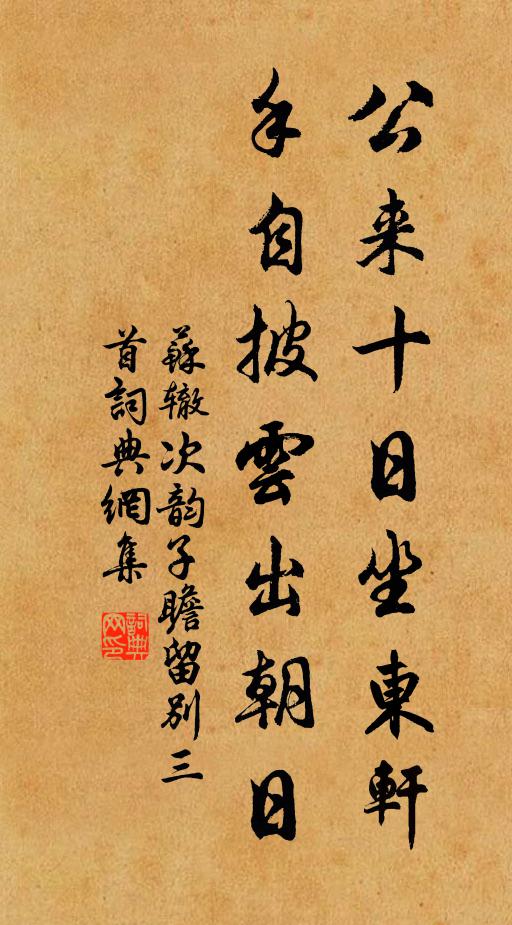 公来十日坐東軒
手自披雲出朝日
蘇辙次韵子瞻留别三
首詞典網集
詞典網印